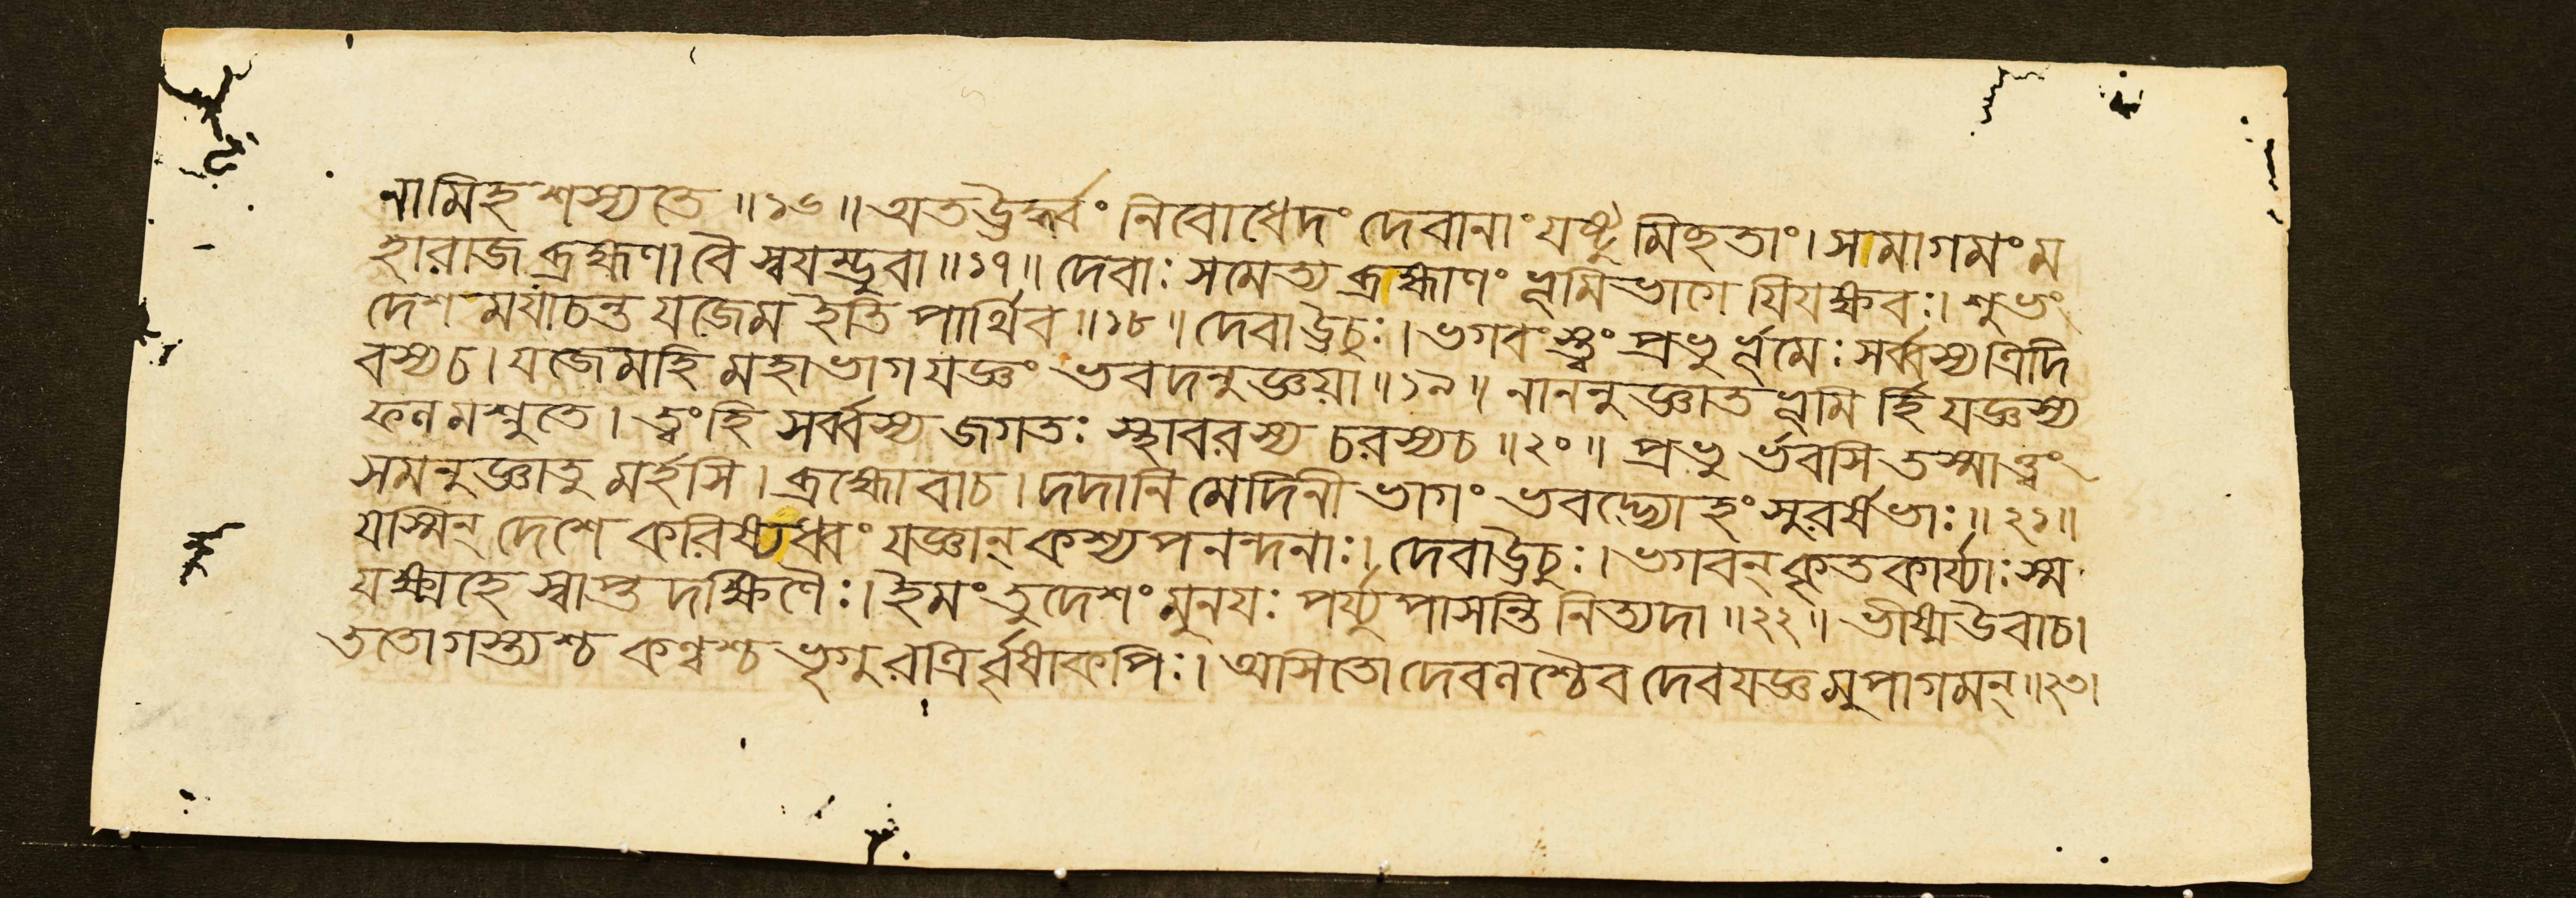 নামিহ শস্যতে ॥১৬॥ অত ঊর্দ্ধ্বং নিবোধেদং দেবানাং যষ্টুমিহতাং। সামাগমং ম
হারাজ ব্রহ্মণা বৈ স্বযম্ভুবা ॥১৭॥ দেবাঃ সমেত্য ব্রহ্মাণং ভূমিভাগে যিযক্ষবঃ। শুভং
দেশ ময়াচন্ত যজেম ইতি পার্থিব ॥১৮॥ দেবা ঊচুঃ। ভগবংস্ত্বং প্রভু র্ভূমেঃ সর্ব্বস্য ত্রিদি
বস্য চ। যজেমহি মহাভাগ যজ্ঞং ভবদনুজ্ঞয়া ॥১৯॥ নাননুজ্ঞাত ভূমি র্হি যজ্ঞস্য
ফল মশ্নুতে। ত্বং হি সর্ব্বস্য জগতঃ স্থাবরস্য চরস্য চ ॥২০॥ প্রভু র্ভবসি তস্মাত্ত্বং
সমনুজ্ঞাতু মর্হসি। ব্রহ্মোবাচ। দদানি মেদিনীভাগং ভবদ্ভ্যোহং সুরর্ষভাঃ॥২১॥
যাস্মিন্ দেশে করিষ্যধ্বং যজ্ঞান্ কশ্যপনন্দনাঃ। দেবা ঊচুঃ। ভগবন্ কৃতকার্য্যাঃ স্ম
যক্ষ্মহে স্বাপ্ত দক্ষিণৈঃ। ইমং তু দেশং মুনযঃ পর্য্যুপাসন্তি নিত্যদা ॥২২॥ ভীষ্ম উবাচ।
ততোগস্ত্যশ্চ কণ্বশ্চ ভৃগুরত্রি র্বৃষাকপিঃ। অসিতো দেবলশ্চৈব দেবযজ্ঞ মুপাগমন্॥২৩।